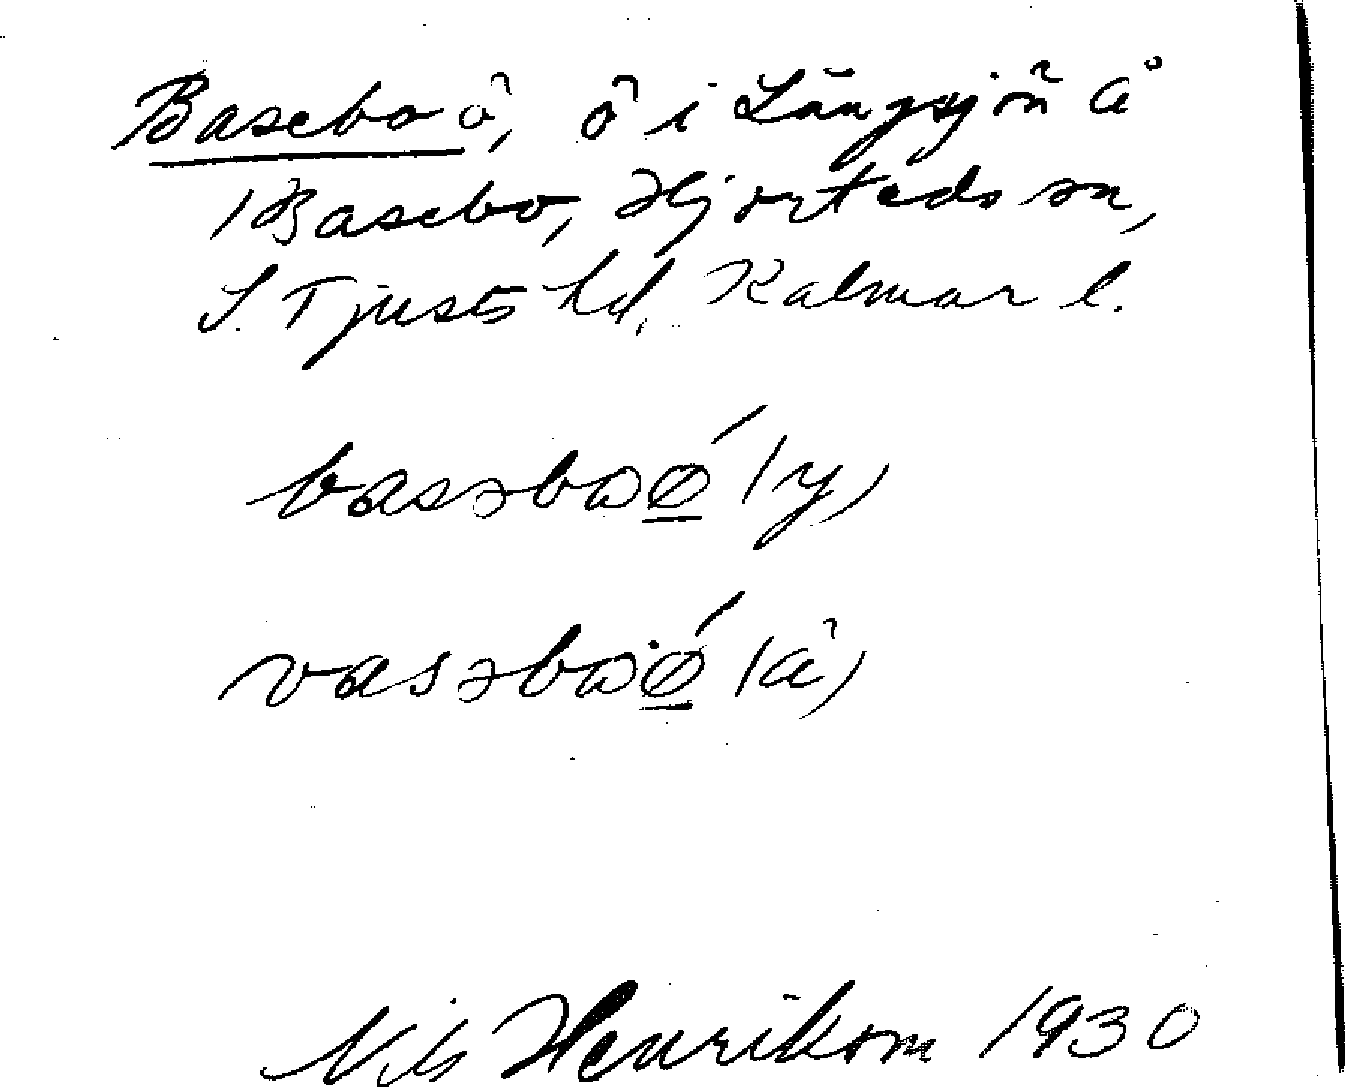 Basebo ö, ö i Långsjön å
/Basebo, Hjorteds sn,
S. Tjusts hd, Kalmar l.
basəbωǿ̱ (y)
vasəbωǿ̱ (ä)
Nils Henrikson 1930